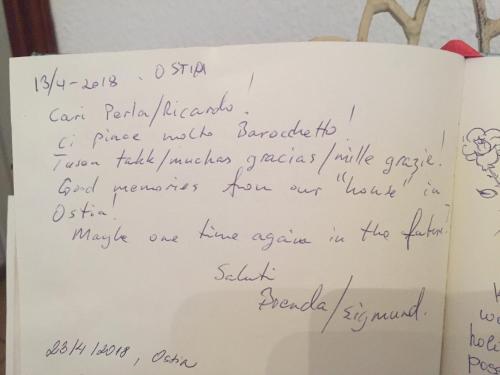 13/4-2018 . OSTIA
Cari Perla/Ricardo!
Ci piace molto Barocchetto!
Tusen takk/muchas gracias/mille grazie!
Good memories from our "house" in
Ostia!
Maybe one time again in the future!
Saluti
Brenda/Sigmund.
23/4/2018, Ostia